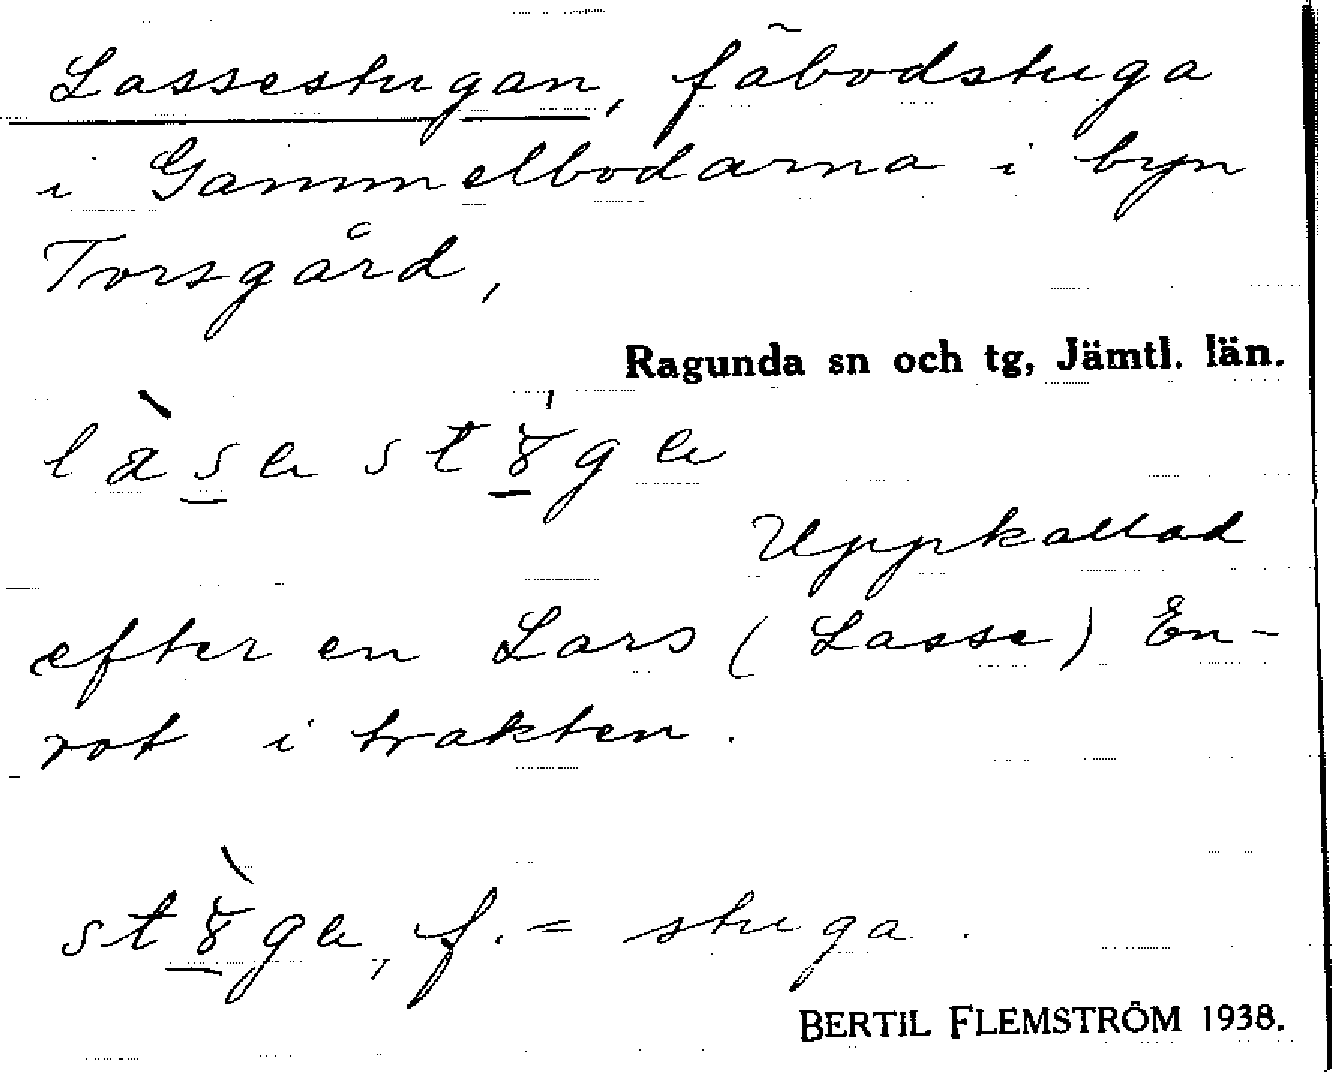 Lassestugan, fäbodstuga
i Gammelbodarna i byn
Torsgård,
Ragunda sn och tg, Jämtl. län.
Uppkallad
efter en Lars (Lasse) En-
rot i trakten.
f. = stuga.
BERTIL FLEMSTRÖM 1938.